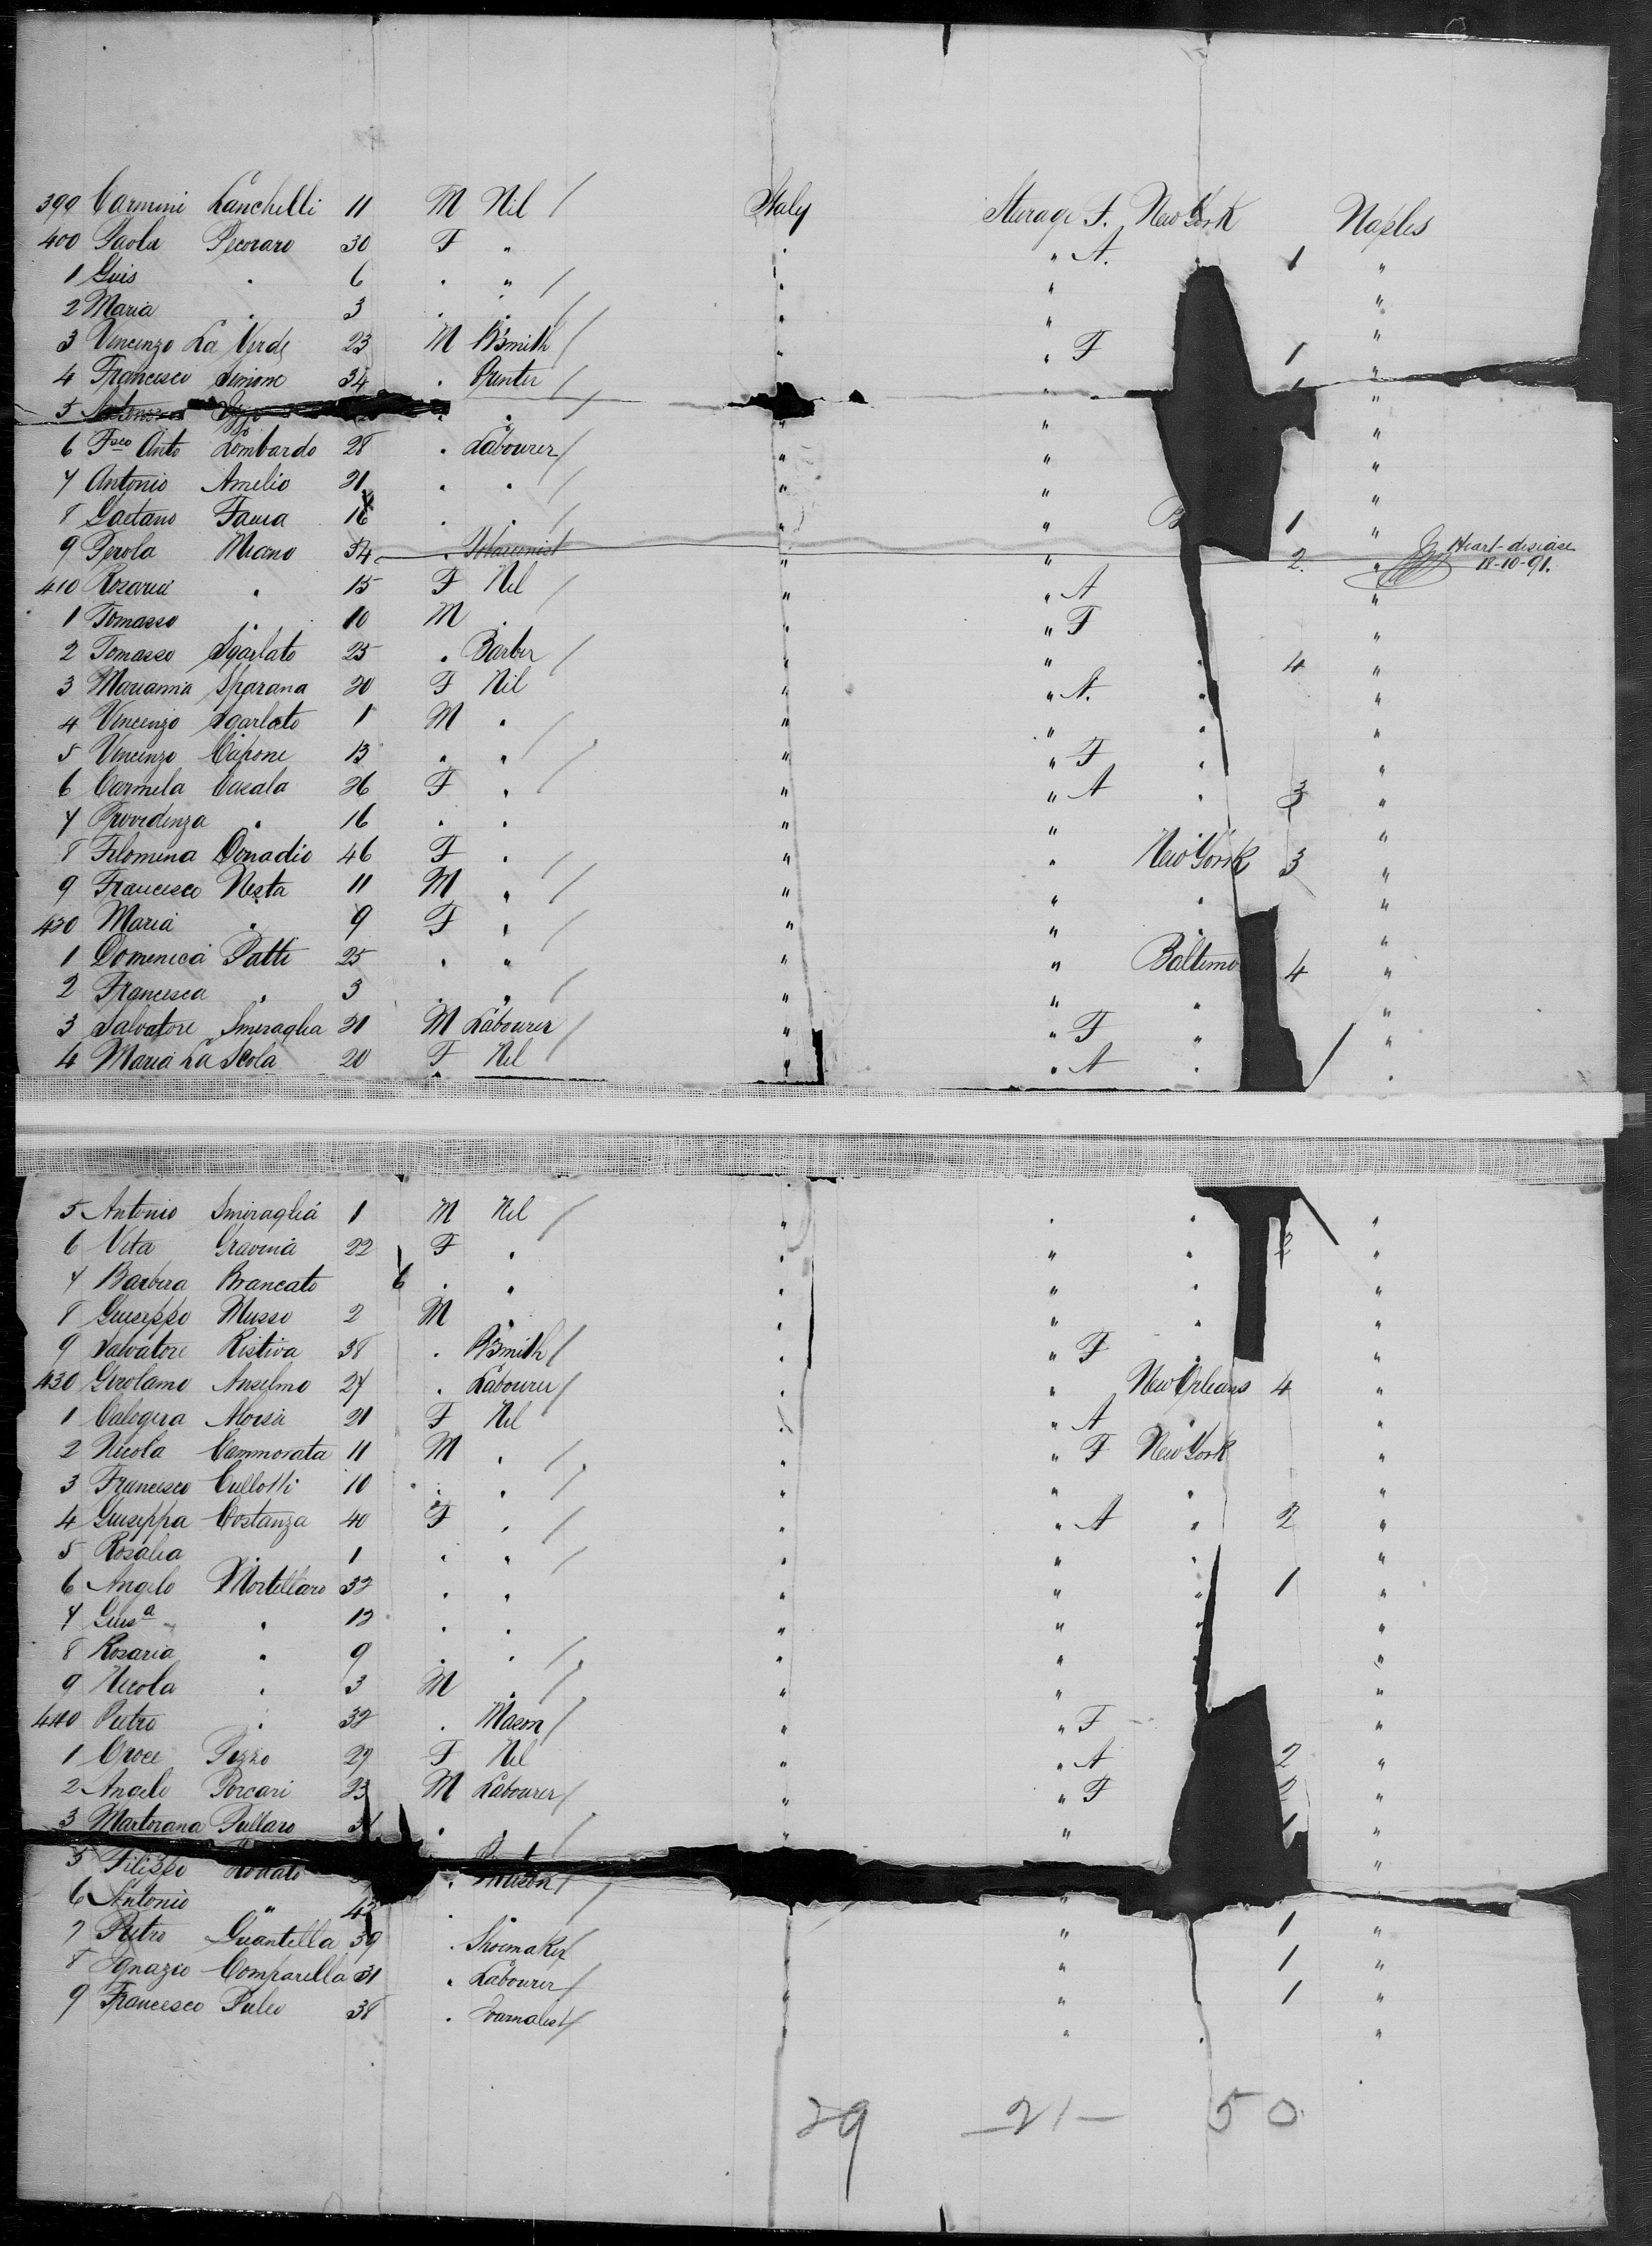 399 Carmini Lanchelli 11 M Nil / Italy Sterage F. New York Naples
400 Paola Pecoraro 30 F " . " A. . 1 "
1 Guis . 6 . " / " " "
2 Maria . 3 . . / " " "
3 Vincenzo La Verde 23 M B'smith / " " F 1 "
4 Francesco Simone 34 . Printer / . . "
5 . . / " " "
6 Fsco Anto Lombardo 28 . Labourer / " " "
7 Antonio Amelio 21 . . / " " "
8 Gaetano 16 . . / " " B 1 "
9 Perola Miano 34 . " " 2. " Heart-disease 18-10-91.
410 Rosaria . 15 F Nil / " " A "
1 Tomasso . 10 M . . " F "
2 Tomasso Sgarlato 25 . Barber / " " . 4 "
3 Marianna Sparana 20 F Nil " " A. . "
4 Vincenzo Sgarlato 1 M . / " " . "
5 Vincenzo Capone 13 . . / " " F . "
6 Carmela Casala 26 F . / " " A . 3 "
7 Providenza . 16 . . " " . "
8 Filomena Donadio 46 F . / " . New York 3 "
9 Francesco Nesta 11 M . / " " . "
420 Maria . 9 F . / " " . "
1 Domenica Patti 25 . " " " Baltimo 4 "
2 Francesca . 3 . . / " " . "
3 Salvatore Smiraglia 21 M Labourer / " " F . "
4 Maria La Scola 20 F Nil " " A . / .
5 Antonio Smiraglia 1 M Nil / " . . "
6 Vita Gravina 22 F . . " . 2 "
7 Barbera Brancato 6 . . . " . "
8 Guiseppo Musso 2 M . . " . "
9 Salvatore Ristiva 38 . B'smith / . " F . "
430 Girolamo Anselmo 27 . Labourer / . " New Orleans 4 "
1 Calogera Morsi 21 F Nil . " A . "
2 Nicola Cammorata 11 M . / . " F New York "
3 Francesco Cullotti 10 . . / . " . "
4 Guiseppa Costanza 40 F . / . " A . 2 "
5 Rosalia . 1 . " / . " . "
6 Angelo Mortellaro 32 . . " " " 1 "
7 Guisa . 12 . . " " . "
8 Rosaria . 9 . . / " " "
9 Nicola . 3 M . / " " "
440 Pietro . 32 . Mason / " " F "
1 Croce Pizzo 27 F Nil " " A 2 "
2 Angelo Porcari 23 M Labourer / " " F 2 "
3 Martorana Pullaro . . / " " 1 "
5 Filippo . Mason / "
6 Antonio " 42 . " / "
7 Pietro Guantella 39 . Shoemaker / " " 1 "
8 Ignazio Comparella 31 . Labourer / " " 1 "
9 Francesco Puleo 38 . Journalist / " " 1 "
" . "
29 21 - 50